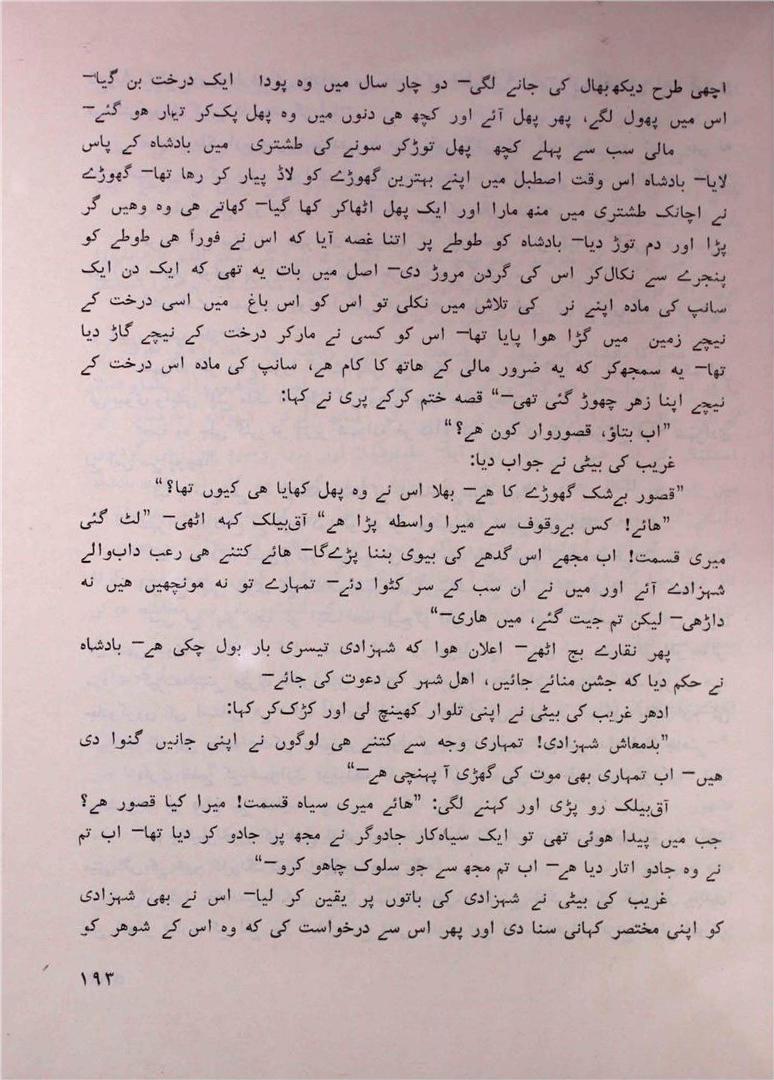 اچھی طرح دیکھ بھال کی جانے لگی— دو چار سال میں وہ پودا ایک درخت بن گیا—
اس میں پھول لگے، پھر پھل آئے اور کچھ ھی دنوں میں وہ پھل پک‌کر تیار ھو گئے—
مالی سب سے پہلے کچھ پھل توڑکر سونے کی طشتری میں بادشاہ کے پاس
لایا— بادشاہ اس وقت اصطبل میں اپنے بہترین گھوڑے کو لاڈ پیار کر رھا تھا— گھوڑے
نے اچانک طشتری میں منھ مارا اور ایک پھل اٹھاکر کھا گیا— کھاتے ھی وہ وھیں گر
پڑا اور دم توڑ دیا— بادشاہ کو طوطے پر اتنا غصہ آیا کہ اس نے فوراً ھی طوطے کو
پنجرے سے نکال‌کر اس کی گردن مروڑ دی— اصل میں بات یہ تھی کہ ایک دن ایک
سانپ کی مادہ اپنے نر کی تلاش میں نکلی تو اس کو اس باغ میں اسی درخت کے
نیچے زمین میں گڑا ھوا پایا تھا— اس کو کسی نے مارکر درخت کے نیچے گاڑ دیا
تھا— یہ سمجھ‌کر کہ یہ ضرور مالی کے ھاتھ کا کام ھے، سانپ کی مادہ اس درخت کے
نیچے اپنا زھر چھوڑ گئی تھی—“ قصہ ختم کرکے پری نے کہا:
”اب بتاؤ، قصوروار کون ھے؟“
غریب کی بیٹی نے جواب دیا:
”قصور بےشک گھوڑے کا ھے— بھلا اس نے وہ پھل کھایا ھی کیوں تھا؟“
”ھائے! کس بےوقوف سے میرا واسطہ پڑا ھے“ آق‌بیلک کہہ اٹھی— ”لٹ گئی
میری قسمت! اب مجھے اس گدھے کی بیوی بننا پڑےگا— ھائے کتنے ھی رعب داب‌والے
شہزادے آئے اور میں نے ان سب کے سر کٹوا دئے— تمہارے تو نہ مونچھیں ھیں نہ
داڑھی— لیکن تم جیت گئے، میں ھاری—“
پھر نقارے بج اٹھے— اعلان ھوا کہ شہزادی تیسری بار بول چکی ھے— بادشاہ
نے حکم دیا کہ جشن منائے جائیں، اھل شہر کی دعوت کی جائے—
ادھر غریب کی بیٹی نے اپنی تلوار کھینچ لی اور کڑک‌کر کہا:
”بدمعاش شہزادی! تمہاری وجہ سے کتنے ھی لوگوں نے اپنی جانیں گنوا دی
ھیں— اب تمہاری بھی موت کی گھڑی آ پہنچی ھے—“
آق‌بیلک رو پڑی اور کہنے لگی: ”ھائے میری سیاہ قسمت! میرا کیا قصور ھے؟
جب میں پیدا ھوئی تھی تو ایک سیاہ‌کار جادوگر نے مجھ پر جادو کر دیا تھا— اب تم
نے وہ جادو اتار دیا ھے— اب تم مجھ سے جو سلوک چاھو کرو—“
غریب کی بیٹی نے شہزادی کی باتوں پر یقین کر لیا— اس نے بھی شہزادی
کو اپنی مختصر کہانی سنا دی اور پھر اس سے درخواست کی کہ وہ اس کے شوھر کو
۱۹۳